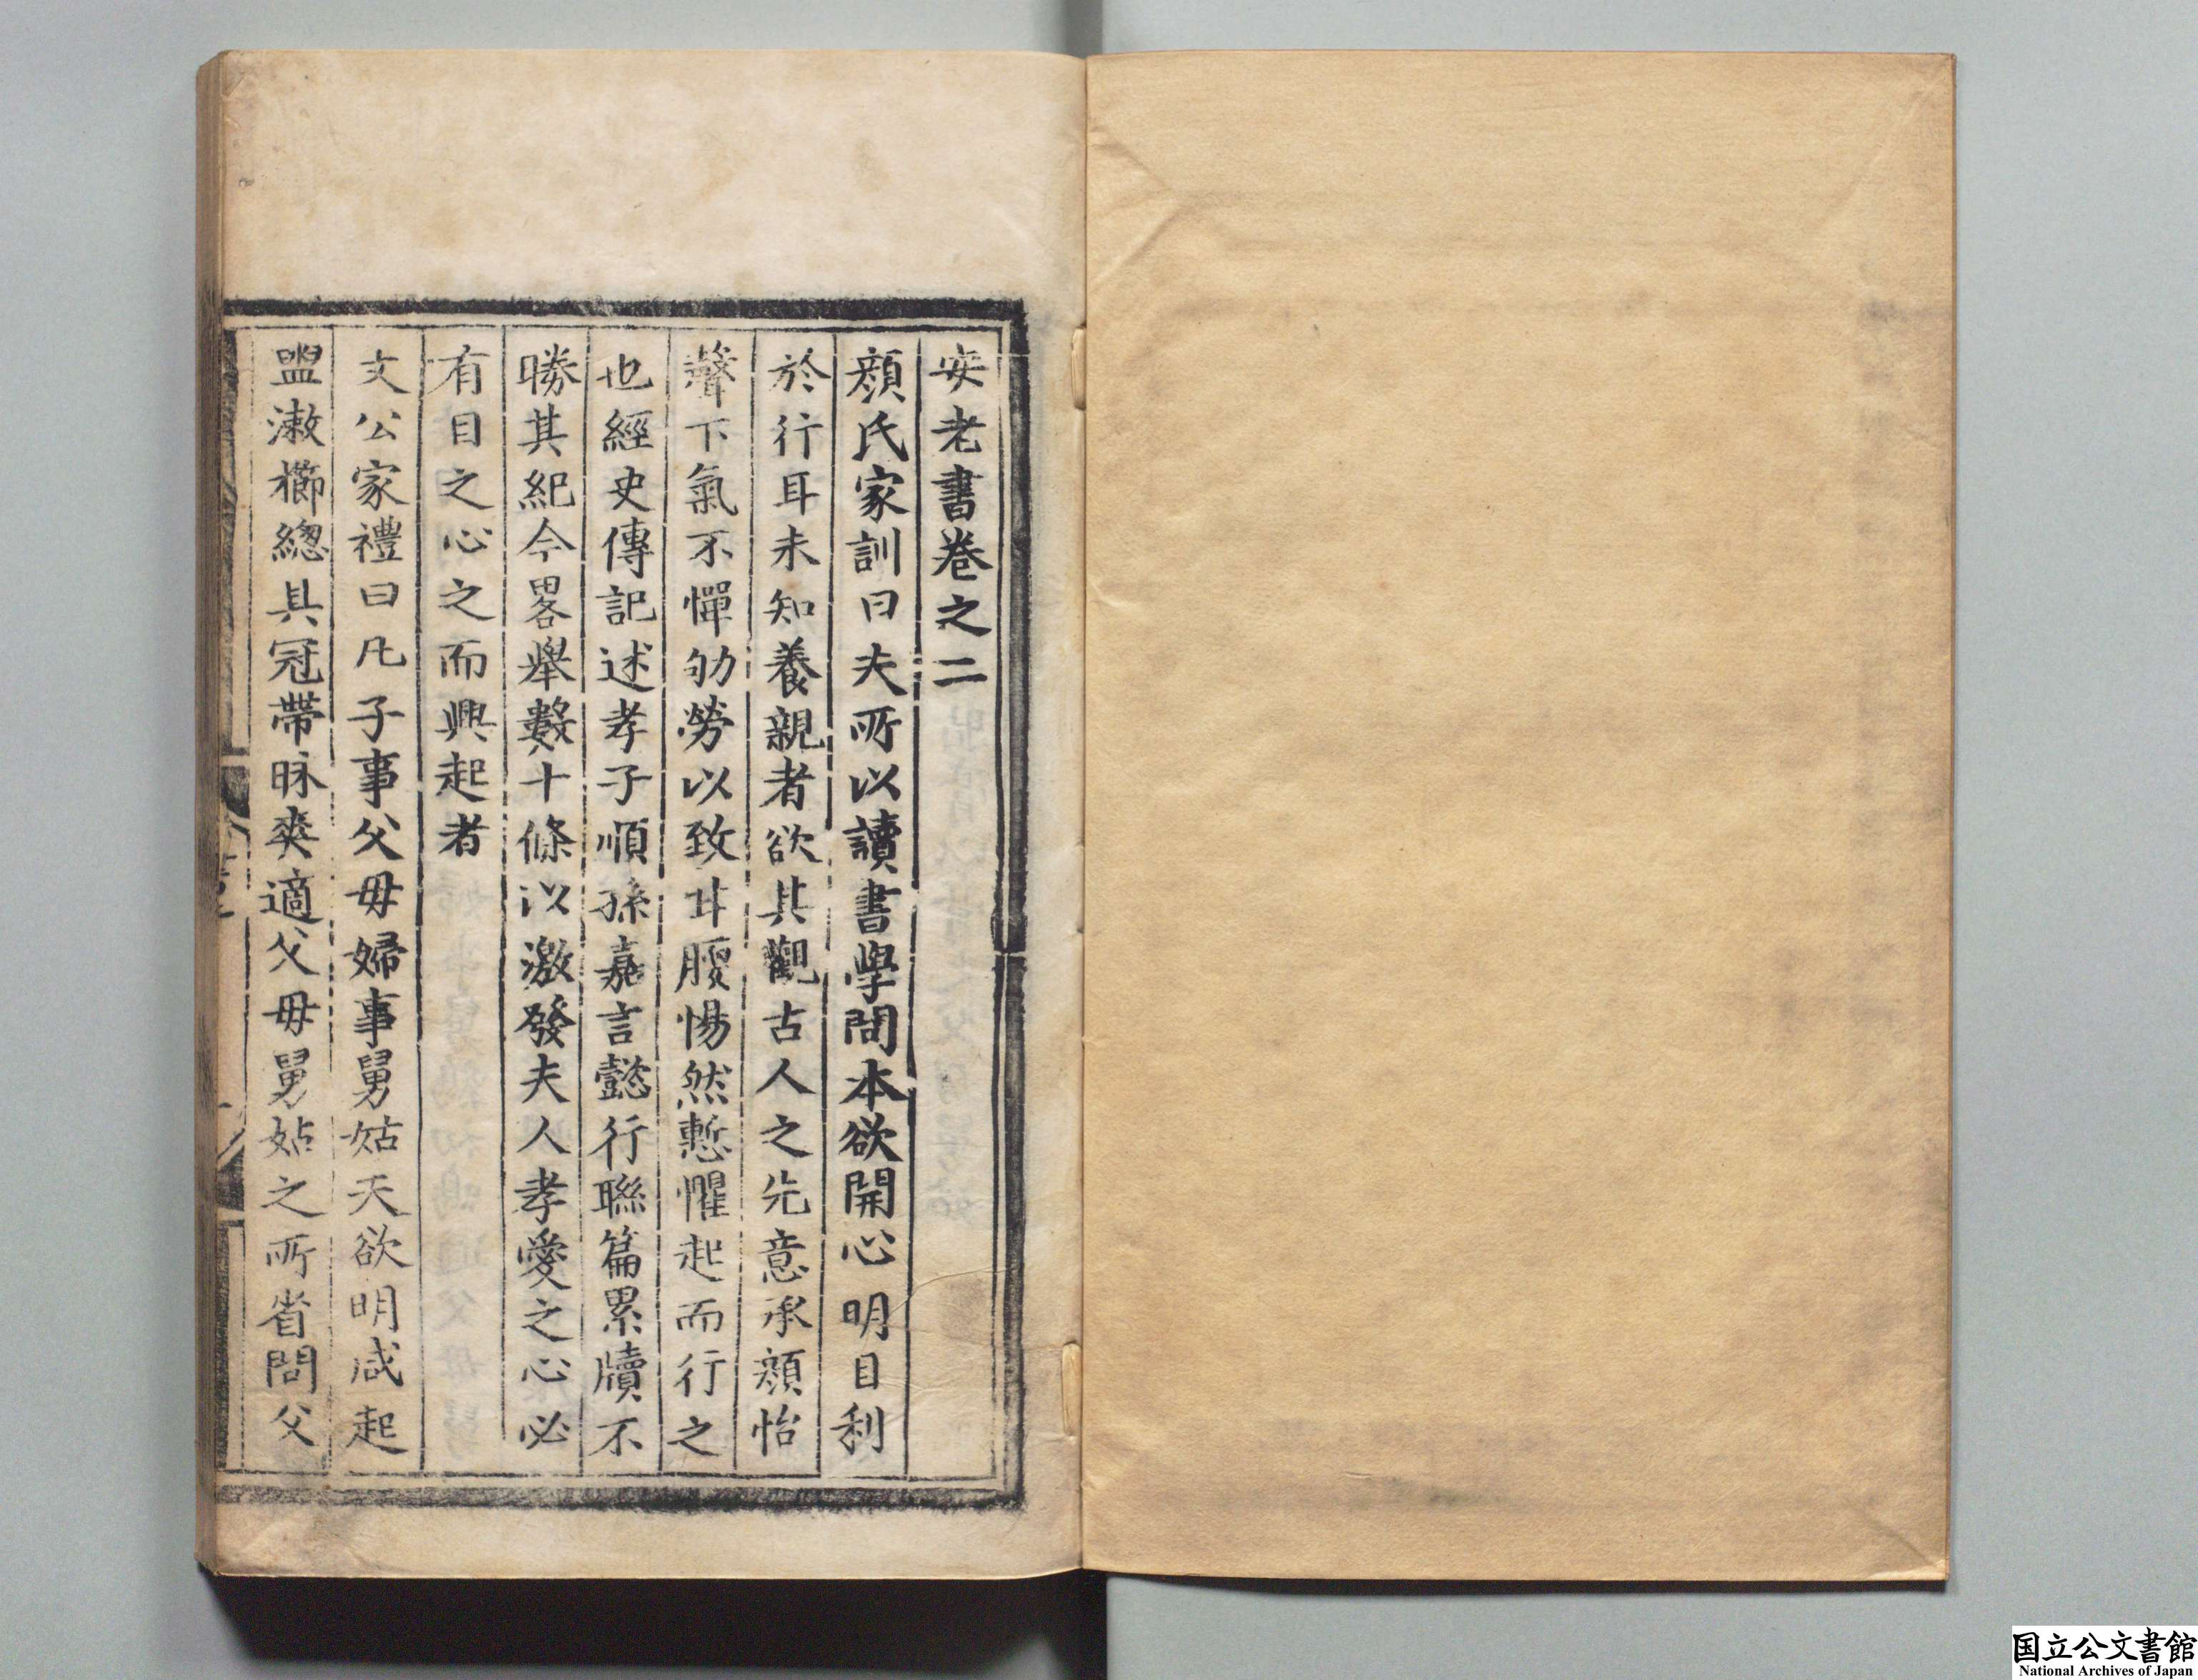 安老書卷之二
顔氏家訓曰夫所以讀書學問本欲開心明目利
於行耳未知養親者欲其觀古人之先意承顔怡
聲下氣不憚劬勞以致甘腝惕然慙懼起而行之
也經史傳記述孝子順孫嘉言懿行聯篇累牘不
勝其紀今畧舉數十條以激發夫人孝愛之心必
有目之心之而興起者
文公家禮曰凡子事父母婦事舅姑天欲明咸起
盥漱櫛總具冠帶昧爽適父母舅姑之所省問父
国立公文書館
National Archives of Japan